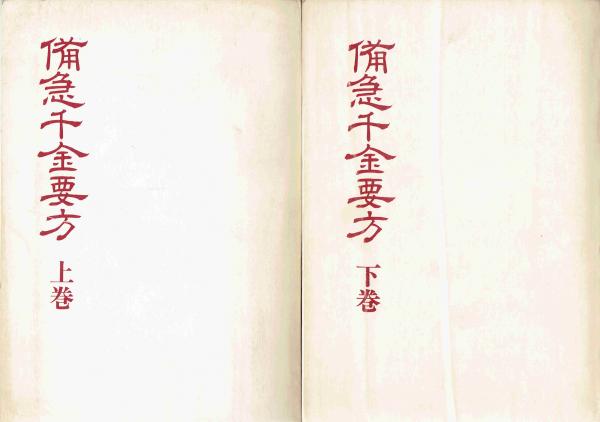 備急千金要方
上巻
備急千金要方
下巻